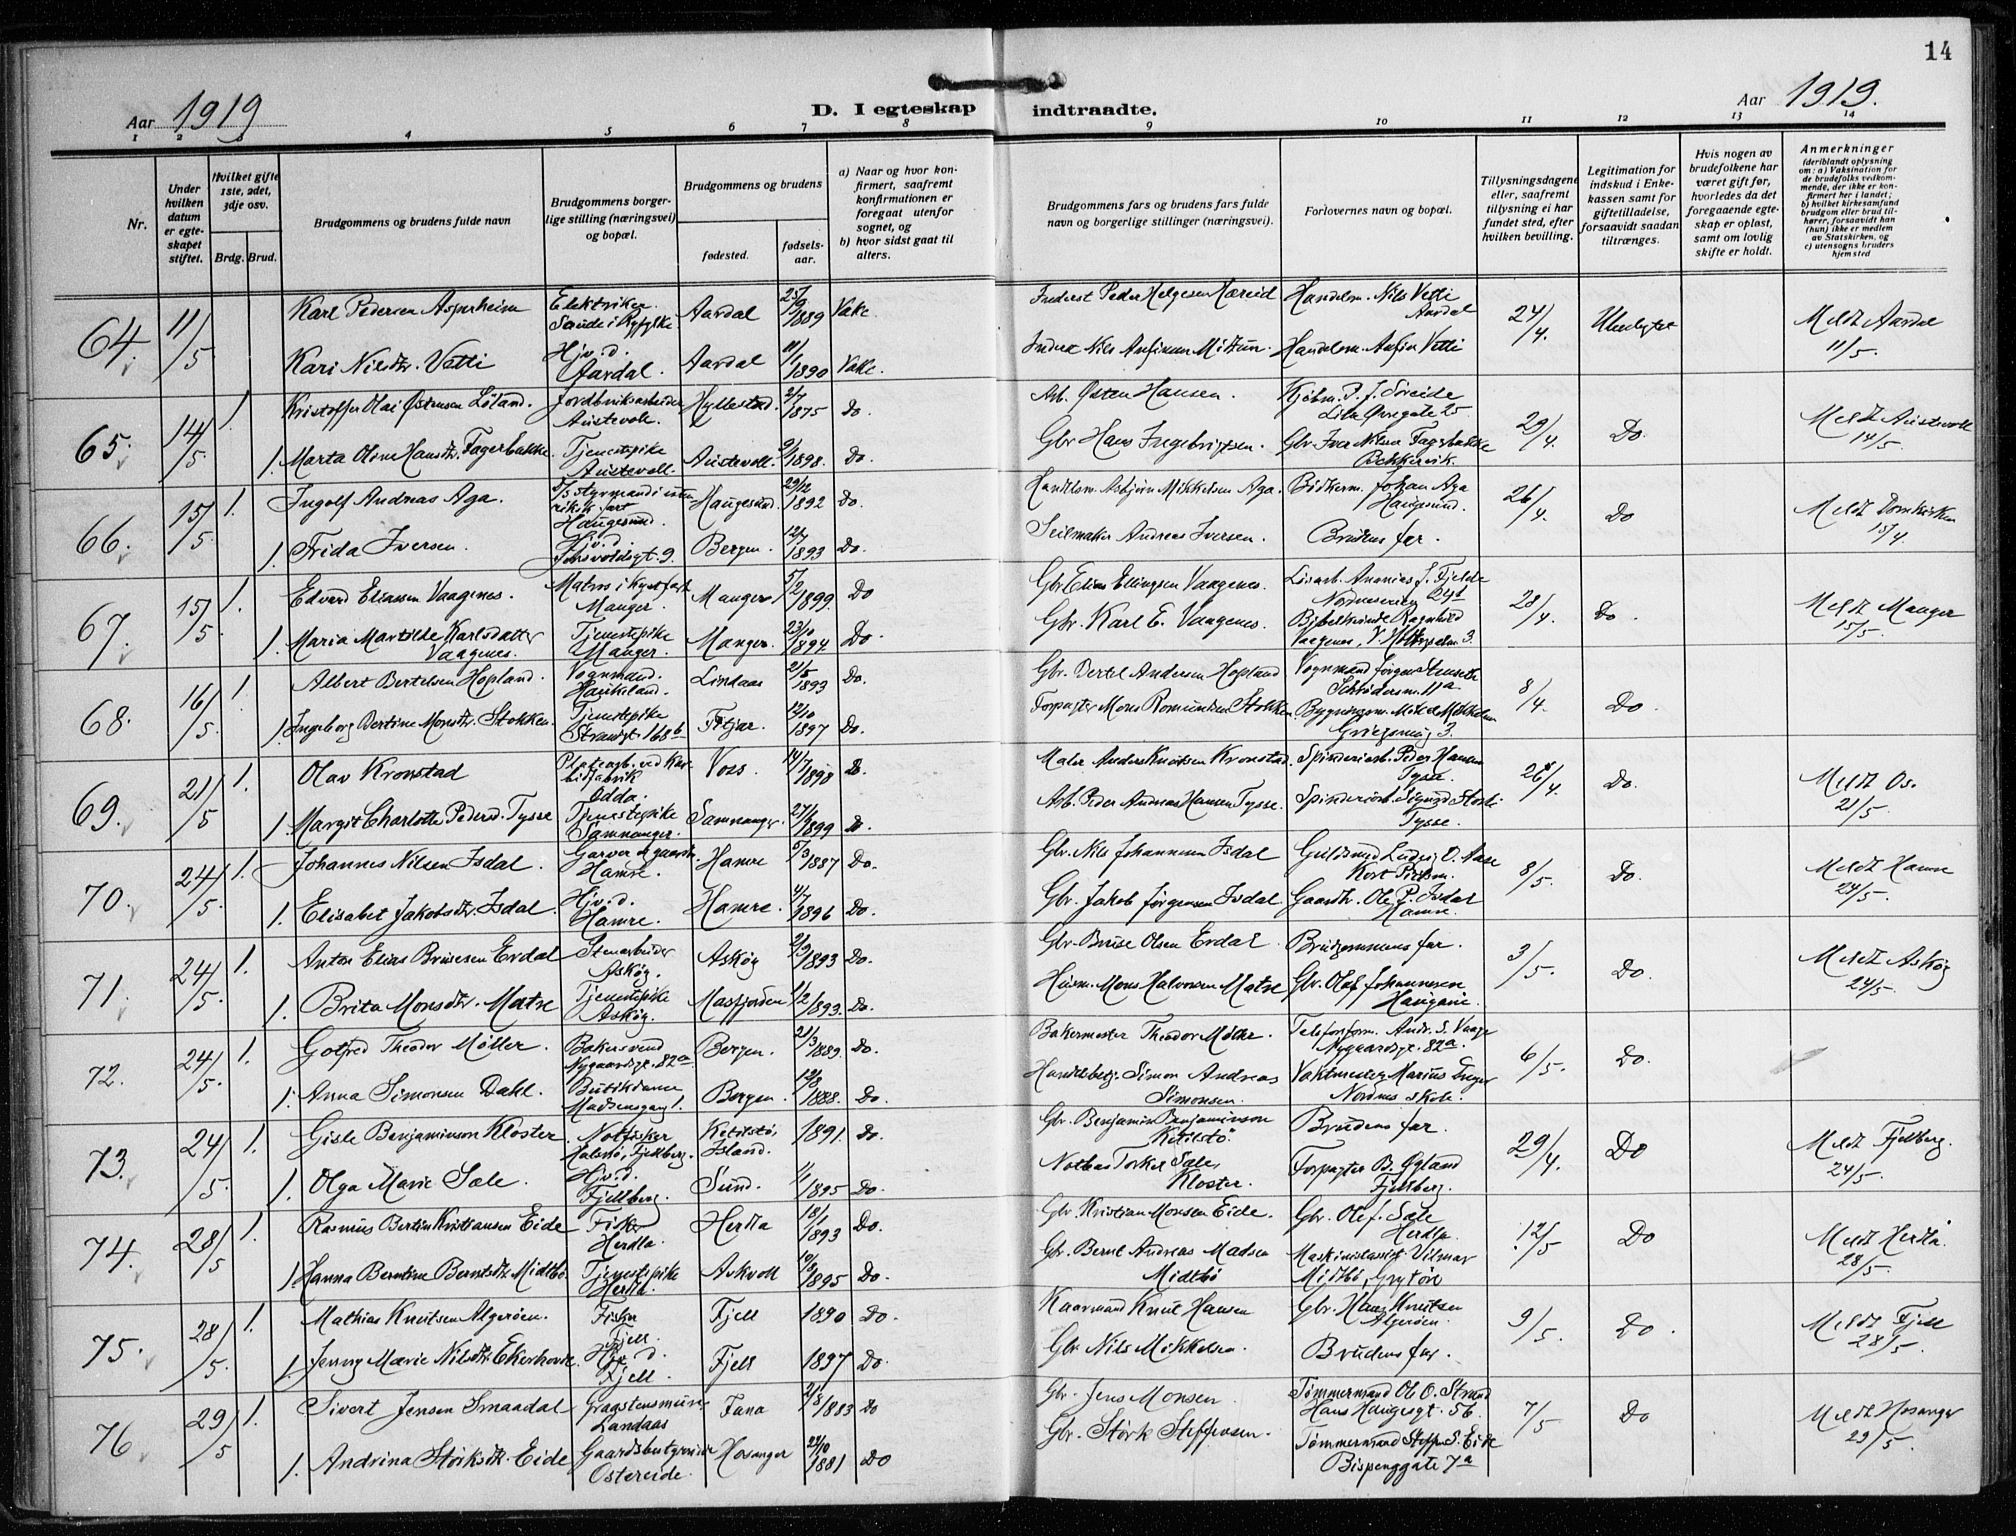 14
Aar 1919
D. I egteskap indtraadte.
Aar 1919.
1 2 3 4 5 6 7 8 9 10 11 12 13 14
Nr.
Under hvilken datum er egteskapet stiftet.
Hvilket gifte 1ste, 2det, 3dje osv.
Brdg. Brud.
Brudgommens og brudens fulde navn
Brudgommens borgerlige stilling (næringsvei) og bopæl.
Brudgommens og brudens
fødested.
fødselsaar.
a) Naar og hvor konfirmert, saafremt konfirmationen er foregaat utenfor sognet, og
b) hvor sidst gaat til alters.
Brudgommens fars og brudens fars fulde navn og borgerlige stillinger (næringsvei).
Forlovernes navn og bopæl.
Tillysningsdagene eller, saafremt tillysning ei har fundet sted, efter hvilken bevilling.
Legitimation for indskud i Enkekassen samt for giftetilladelse, forsaavidt saadan tiltrænges.
Hvis nogen av brudefolkene har været gift før, hvorledes da det foregaaende egteskap er opløst, samt om lovlig skifte er holdt.
Anmerkninger
(deriblandt oplysning om: a) Vaksination for de brudefolks vedkommende, der ikke er konfirmert her i landet; b) hvilket kirkesamfund brudgom eller brud tilhører, forsaavidt han (hun) ikke er medlem av Statskirken, og c) utensogns bruders hjemsted
64. 11/5 Karl Pedersen Asperheim Elektriker Saude i Ryfylke Aardal 25/9 1889 Vake. Inderst Peder Helgesen Hæreid Handelsm. Nils Vetti Aardal 24/4. Ubenyttet Meldt Aardal 11/5.
Kari Nilsdtr. Vetti Hjv. d. Aardal. Aardal 11/1 1890 Vake. Inderst Nils Anfinsen Midtun. Handelsm. Anfin Vetti
65. 14/5 1. Kristoffer Olai Østensen Løland. Jordbruksarbeider Austevoll. Hyllestad. 2/7 1875 Do. Arb. Østen Hansen. Kjøbm. P. J. Søreide Lille Øvregate 25 29/4. Do. Meldt Austevoll 14/5.
1. Marta Oline Hansdtr. Fagerbakke Tjenestepike Austevoll. Austevoll. 9/1 1898. Do. Gbr Hans Ingebrigtsen. Gbr. Iver Nilsen Fagerbakke Bekkjervik.
66. 15/5 1. Ingolf Andreas Aga. Haugesund. Haugesund. 29/12 1892 Do. Handelsm. Asbjørn Mikkelsen Aga. Bødkerm. Johan Aga Haugesund. 26/4. Do Meldt Domkirken 15/4.
1. Frida Iversen. Hjv. d. Bergen. 12/7 1893 Do. Seilmaker Andreas Iversen. Brudens far.
67. 15/5 1. Edvard Eliassen Vaagenes. Matros i kystfart Manger. Manger 5/2 1899. Do Gbr Elias Ellingsen Vaagenes. Ananias J. Fjelde 24d 28/4. Do. Meldt Manger 15/5.
1. Maria Martilde Karlsdatter Vaagenes. Tjenestepike Manger. Manger. 23/10 1894 Do. Gbr. Karl E. Vaagenes. Bibelkvinde Ragnhild Vaagenes,
68. 16/5 1. Albert Bertelsen Hopland. Vognmand. Haukeland. Lindaas 21/5 1893 Do. Gbr. Bertel Andersen Hopland Vognmand Jørgen Stenseth 11a 8/4. Do.
1. Ingeborg Bertine Monsdtr. Stokken. Tjenestepike Strandgt. 168b Fitjar. 12/10 1897 Do. Forpagter Mons Romundsen Stokken
69. 21/5 1. Olav Kronstad Odda. Voss. 14/7 1898 Do. Maler Anders Knutsen Kronstad. Spinderiarb. Peder Hansen Tysse. 26/4. Do. Meldt Os. 21/5.
1. Margit Charlotte Pedersd. Tysse Tjenestepike Samnanger. Samnanger 27/6 1899 Do. Arb. Peder Andreas Hansen Tysse. Spinderiarb. Sigurd Tysse.
70. 24/5. 1. Johannes Nilsen Isdal. Garver og gaardbr. Hamre. Hamre 5/3 1887 Do. Gbr. Nils Johannesen Isdal Guldsmed Ludvig O. 8/5. Do. Meldt Hamre 24/5.
1. Elisabet Jakobsdtr. Isdal. Hjv. d. Hamre. Hamre. 4/7 1896 Do. Gbr. Jakob Jørgensen Isdal Gaardbr. Ole P. Isdal Hamre.
71. 24/5. 1. Anton Elias Brusesen Erdal Stenarbeider Askøy. Askøy 2/9 1893 Do. Gbr. Bruse Olsen Erdal Brudgommens far. 3/5. Do. Meldt Askøy 24/5.
1. Brita Monsdtr. Matre Tjenestepike Askøy. Masfjorden 1/2 1893. Do. Husm. Mons Halvorsen Matre Gbr. Olaf Johannesen
72. 24/5. 1. Gotfred Theodor Møller. Bakersvend Nygaardsgt. 82a Bergen. 21/3 1889. Do. Bakermester Theodor Møller. Telefonform. Andr. S. Vaage Nygaardsgt. 82a. 6/5. Do.
1. Anna Simonsen Dahl. Butikdame Madsensgang 1. Bergen. 12/8 1888. Do. Simon Andreas Simonsen. Vaktmester Marius Nordnes skole.
73. 24/5. 1. Gisle Benjaminson Kloster. Notfisker Fjelberg. Ketilstö, Island. 1891. Do. Gbr. Benjamin Benjaminson Ketilstö. Brudens far. 29/4. Do Meldt Fjelberg. 24/5.
1. Olga Marie Sæle. Hjv. d. Fjelberg. Sund. 1/1 1895 Do. Notbas Torkel Sæle, Kloster. Forpagter B. Øgland Fjelberg.
74. 28/5 1. Rasmus Bertin Kristiansen Eide Fisker Herdla. Herdla 18/1 1893 Do. Gbr. Kristian Monsen Eide. Gbr. Ole J. Sæle Herdla 12/5 Do Meldt Herdla. 28/5.
1. Hanna Berntine Berntsdtr. Midtbö. Tjenestepike Herdla. Askvoll 10/8 1895 Do. Gbr. Bernt Andreas Madsen Midtbö Maskinistassist. Vilmar Midtbö,
75. 28/5. 1. Mathias Knutsen Algerøen. Fisker Fjell. Fjell 1890 Do. Kaarmand Knut Hansen Gbr. Hans Knutsen Algerøen. 9/5. Do. Meldt Fjell 28/5.
1. Jenny Marie Nilsdtr. Ekerhovde. Hjv. d. Fjell. Fjell 1897 Do. Gbr Nils Mikkelsen. Brudens far.
76 29/5 1. Sivert Jensen Smaadal Graastensmurer Landaas Fana 2/8 1883 Do Gbr. Jens Monsen Tømmermand Ole O. Strand Hans Haugesgt. 56. 7/5 Do Meldt Hosanger 29/5.
1. Andrina Störksdtr. Eide Gaardsbestyrerinde Ostereide. Hosanger 24/10 1881 Do Gbr. Störk Steffensen. Tømmermand Steffen S. Eide Bispenggate 7a